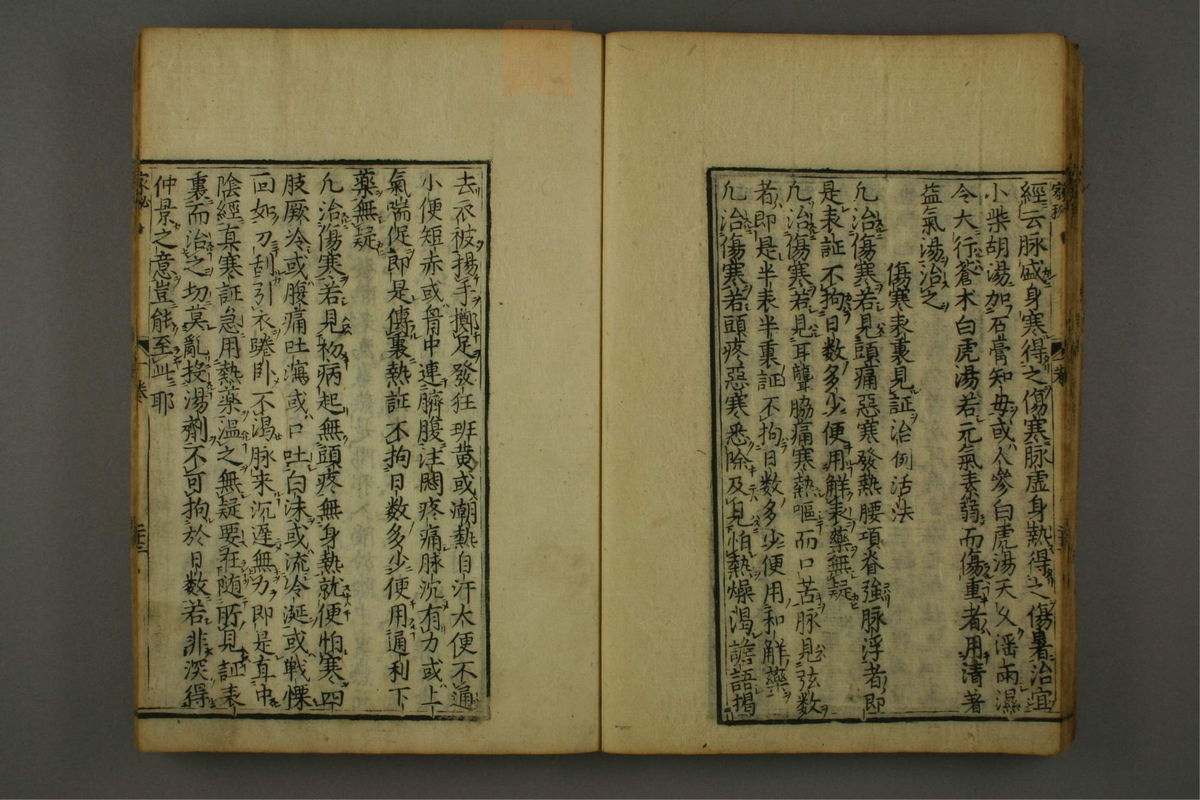 經云脉盛身寒得之傷寒脉虚身熱得之傷暑治宜
小柴胡湯加石膏知母或人參白虎湯天久淫雨濕
令大行蒼朮白虎湯若元氣素弱而傷重者用清暑
益氣湯治之
傷寒表裏見証治例活法
凢治傷寒若見頭痛惡寒發熱腰項脊強脉浮者即
是表証不拘日数多少便用解表藥無疑
凢治傷寒若見耳聾脇痛寒熱嘔而口苦脉見弦数
者即是半表半裏証不拘日数多少便用和解藥
凢治傷寒若頭疼惡寒悉除及見怕熱燥渴譫語揭
去衣被揚手擲足發狂班黄或潮熱自汗大便不通
小便短赤或胷中連臍腹注悶疼痛脉沉有力或上
氣喘促即是傳裏熱証不拘日数多少便用通利下
藥無疑
凢治傷寒若見初病起無頭疼無身熱就便怕寒四
肢厥冷或腹痛吐瀉或口吐白沫或流冷涎或戰慄
面如刀刮引衣踡卧不渴脉来沉遲無力即是直中
陰經真寒証急用熱藥温之無疑要在随所見証表
裏而治之切莫亂投湯劑不可拘於日数若非深得
仲景之意豈能至此耶